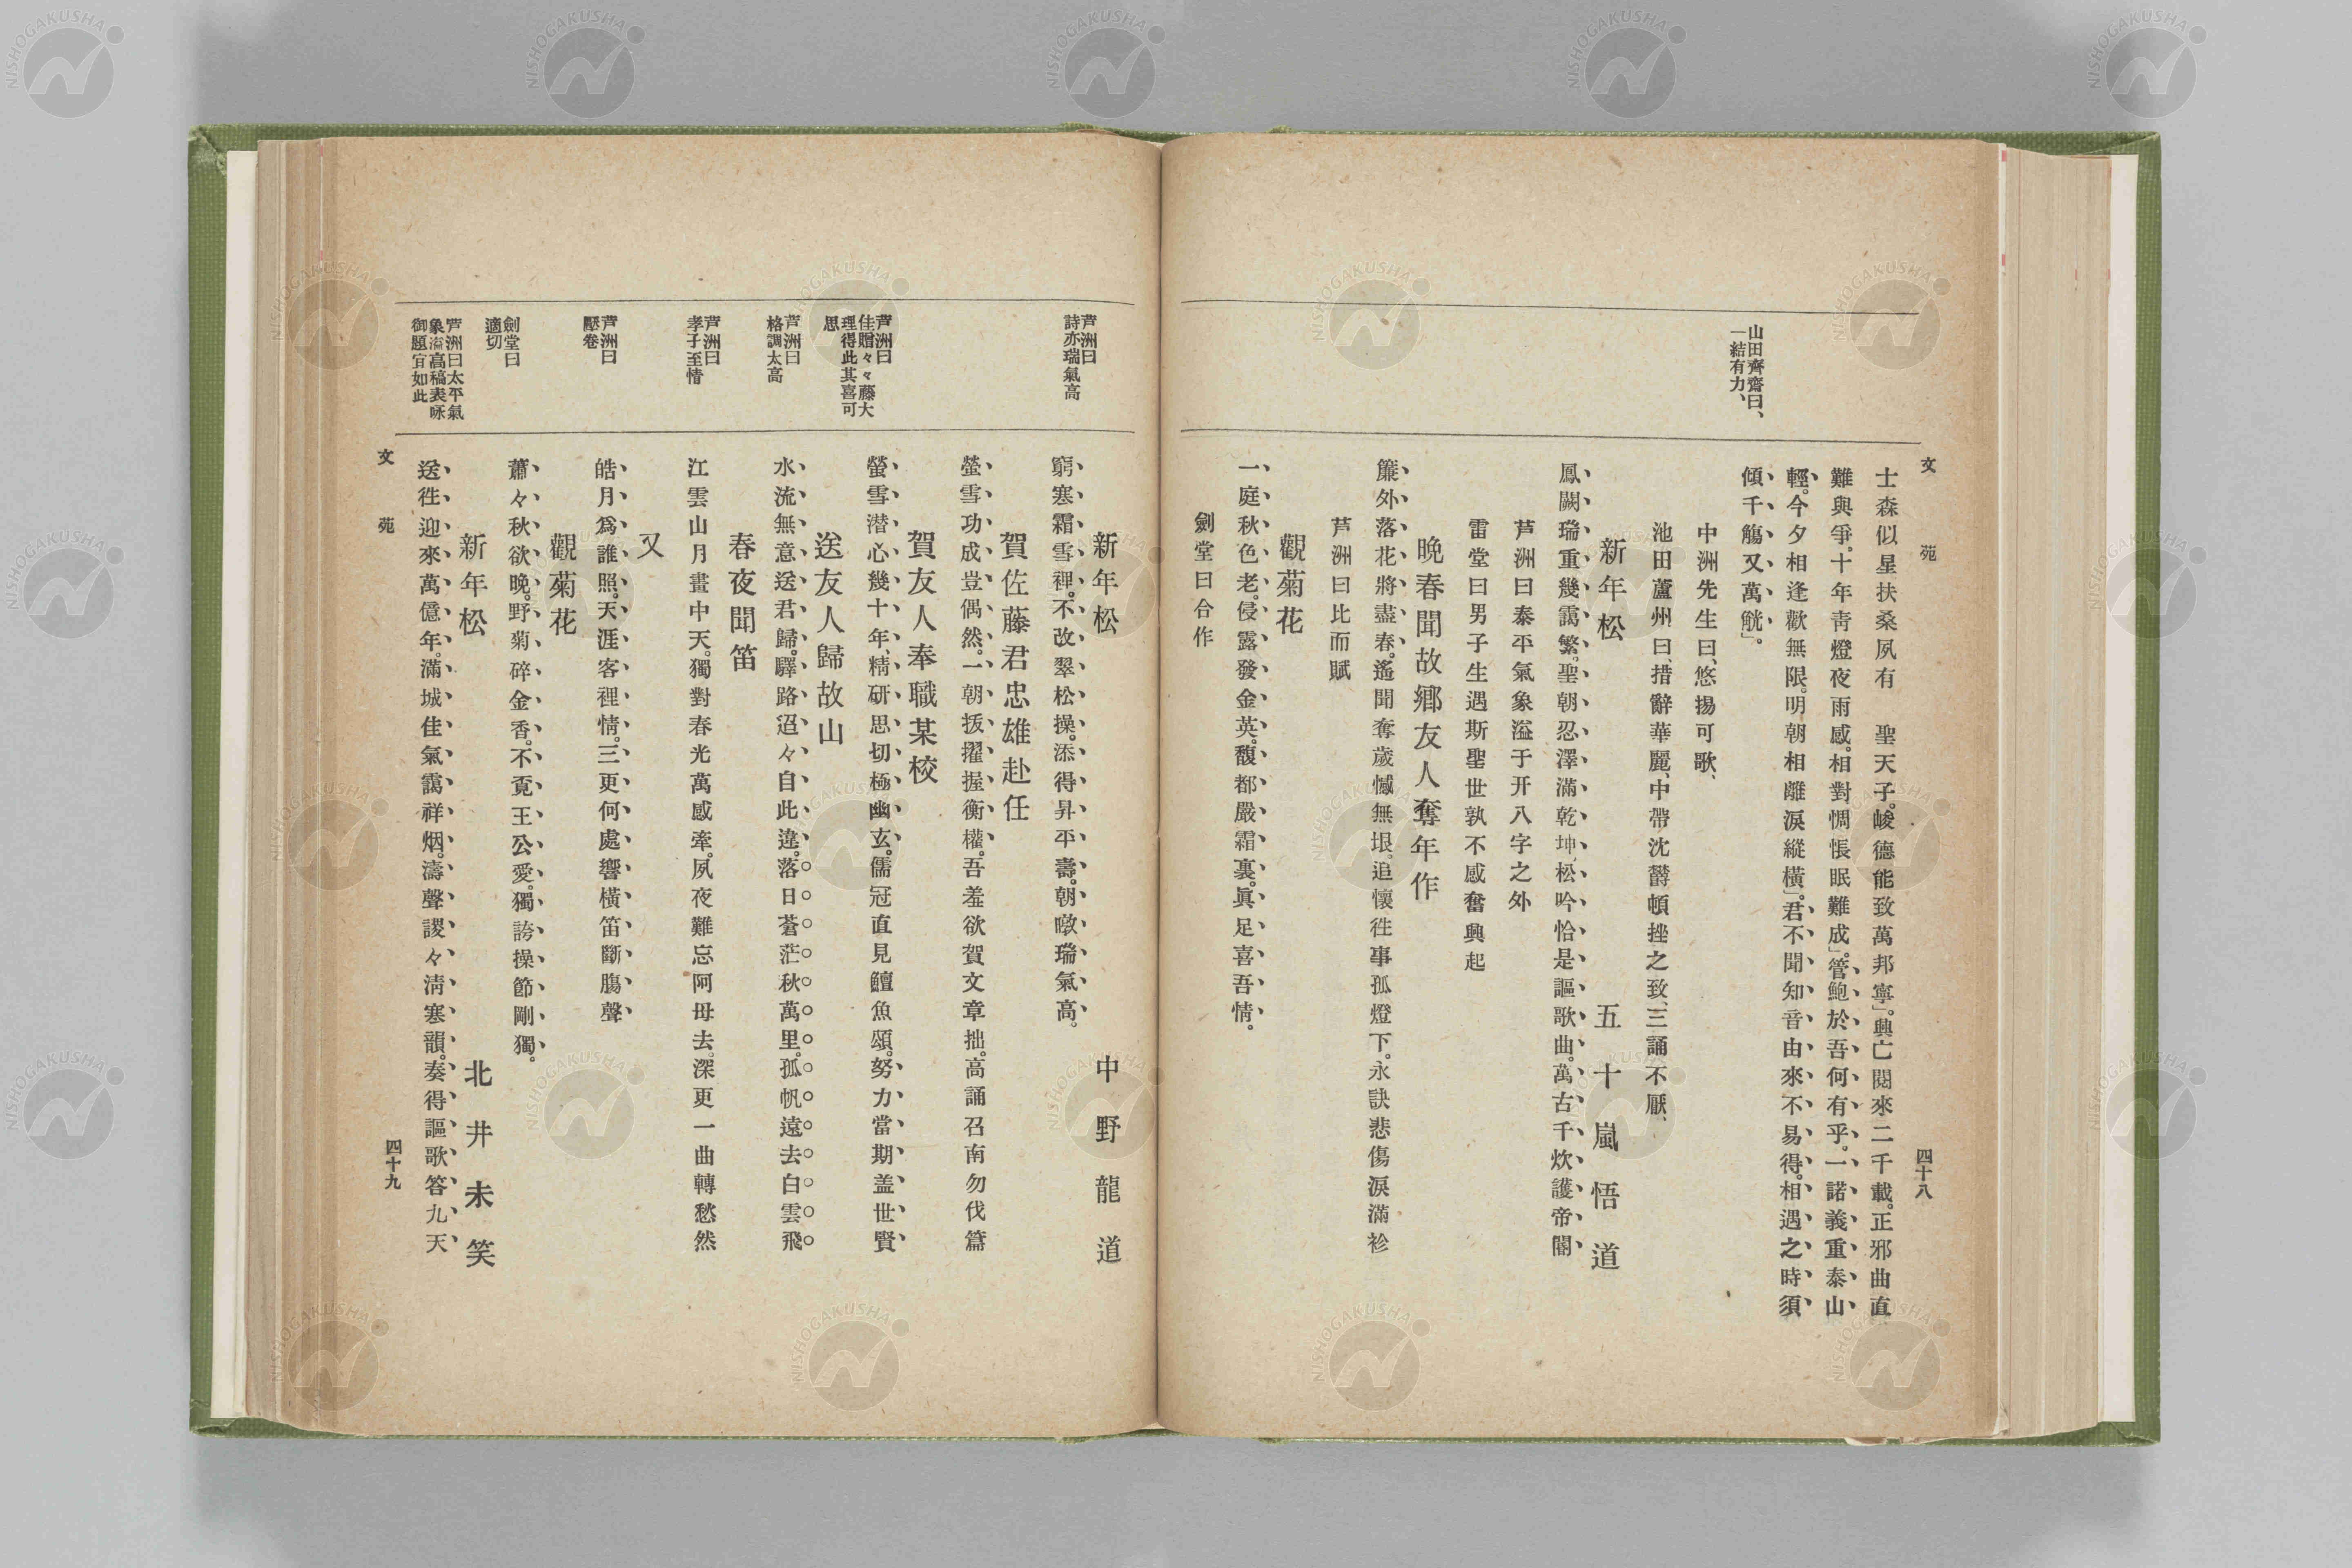 文苑
四十八
山田齊齋曰、
一結有力、
士森似星扶桑夙有　聖天子。峻德能致萬邦寧」。興亡閱來二千載。正邪曲直
難與爭。十年靑燈夜雨感。相對惆悵眠難成」。管鮑於吾何有乎。一諾義重泰山
輕。今夕相逢歡無限。明朝相離淚縱橫」。君不聞知音由來不易得。相遇之時須
傾千觴又萬觥」。
中洲先生曰、悠揚可歌、
池田蘆州曰、措辭華麗、中帶沈鬱頓挫之致、三誦不厭、
新年松
五十嵐悟道
鳳闕瑞重幾靄繁。聖朝忍澤滿乾坤、松吟恰是謳歌曲。萬古千炊護帝閽
芦洲曰泰平氣象溢于开八字之外
雷堂曰男子生遇斯聖世孰不感奮興起
晚春聞故鄉友人奪年作
簾外落花將盡春。遙聞奪歲憾無垠。追懷徃事孤燈下。永訣悲傷淚滿衫
芦洲曰比而賦
觀菊花
一庭秋色老。侵露發金英。馥都嚴霜裏。眞足喜吾情。
劍堂曰合作
芦洲曰
詩亦瑞氣高
新年松
中野龍道
窮寒霜雪裡。不改翠松操。添得昇平壽。朝暾瑞氣高。
賀佐藤君忠雄赴任
螢雪功成豈偶然。一朝拔擢握衡權。吾羞欲賀文章拙。高誦召南勿伐篇
芦洲曰
佳贈々々藤大
理得此其喜可
思
賀友人奉職某校
螢雪潜心幾十年、精研思切極幽玄。儒冠直見鱣魚頌。努力當期盖世賢
芦洲曰
格調太高
送友人歸故山
水流無意送君歸。驛路迢々自此違。落日蒼茫秋萬里。孤帆遠去白雲飛
芦洲曰
孝子至情
春夜聞笛
江雲山月畫中天。獨對春光萬感牽。夙夜難忘阿母去。深更一曲轉愁然
芦洲曰
壓卷
又
皓月爲誰照。天涯客裡情。三更何處響橫笛斷膓聲
劍堂曰
適切
觀菊花
蕭々秋欲晚。野菊碎金香。不覔王公愛。獨誇操節剛獨。
芦洲曰太平氣
象溢高稿表咏
御題宜如此
新年松
北井未笑
送徃迎來萬億年。滿城佳氣靄祥烟。濤聲謖々淸寒韻。奏得謳歌答九天
文苑
四十九